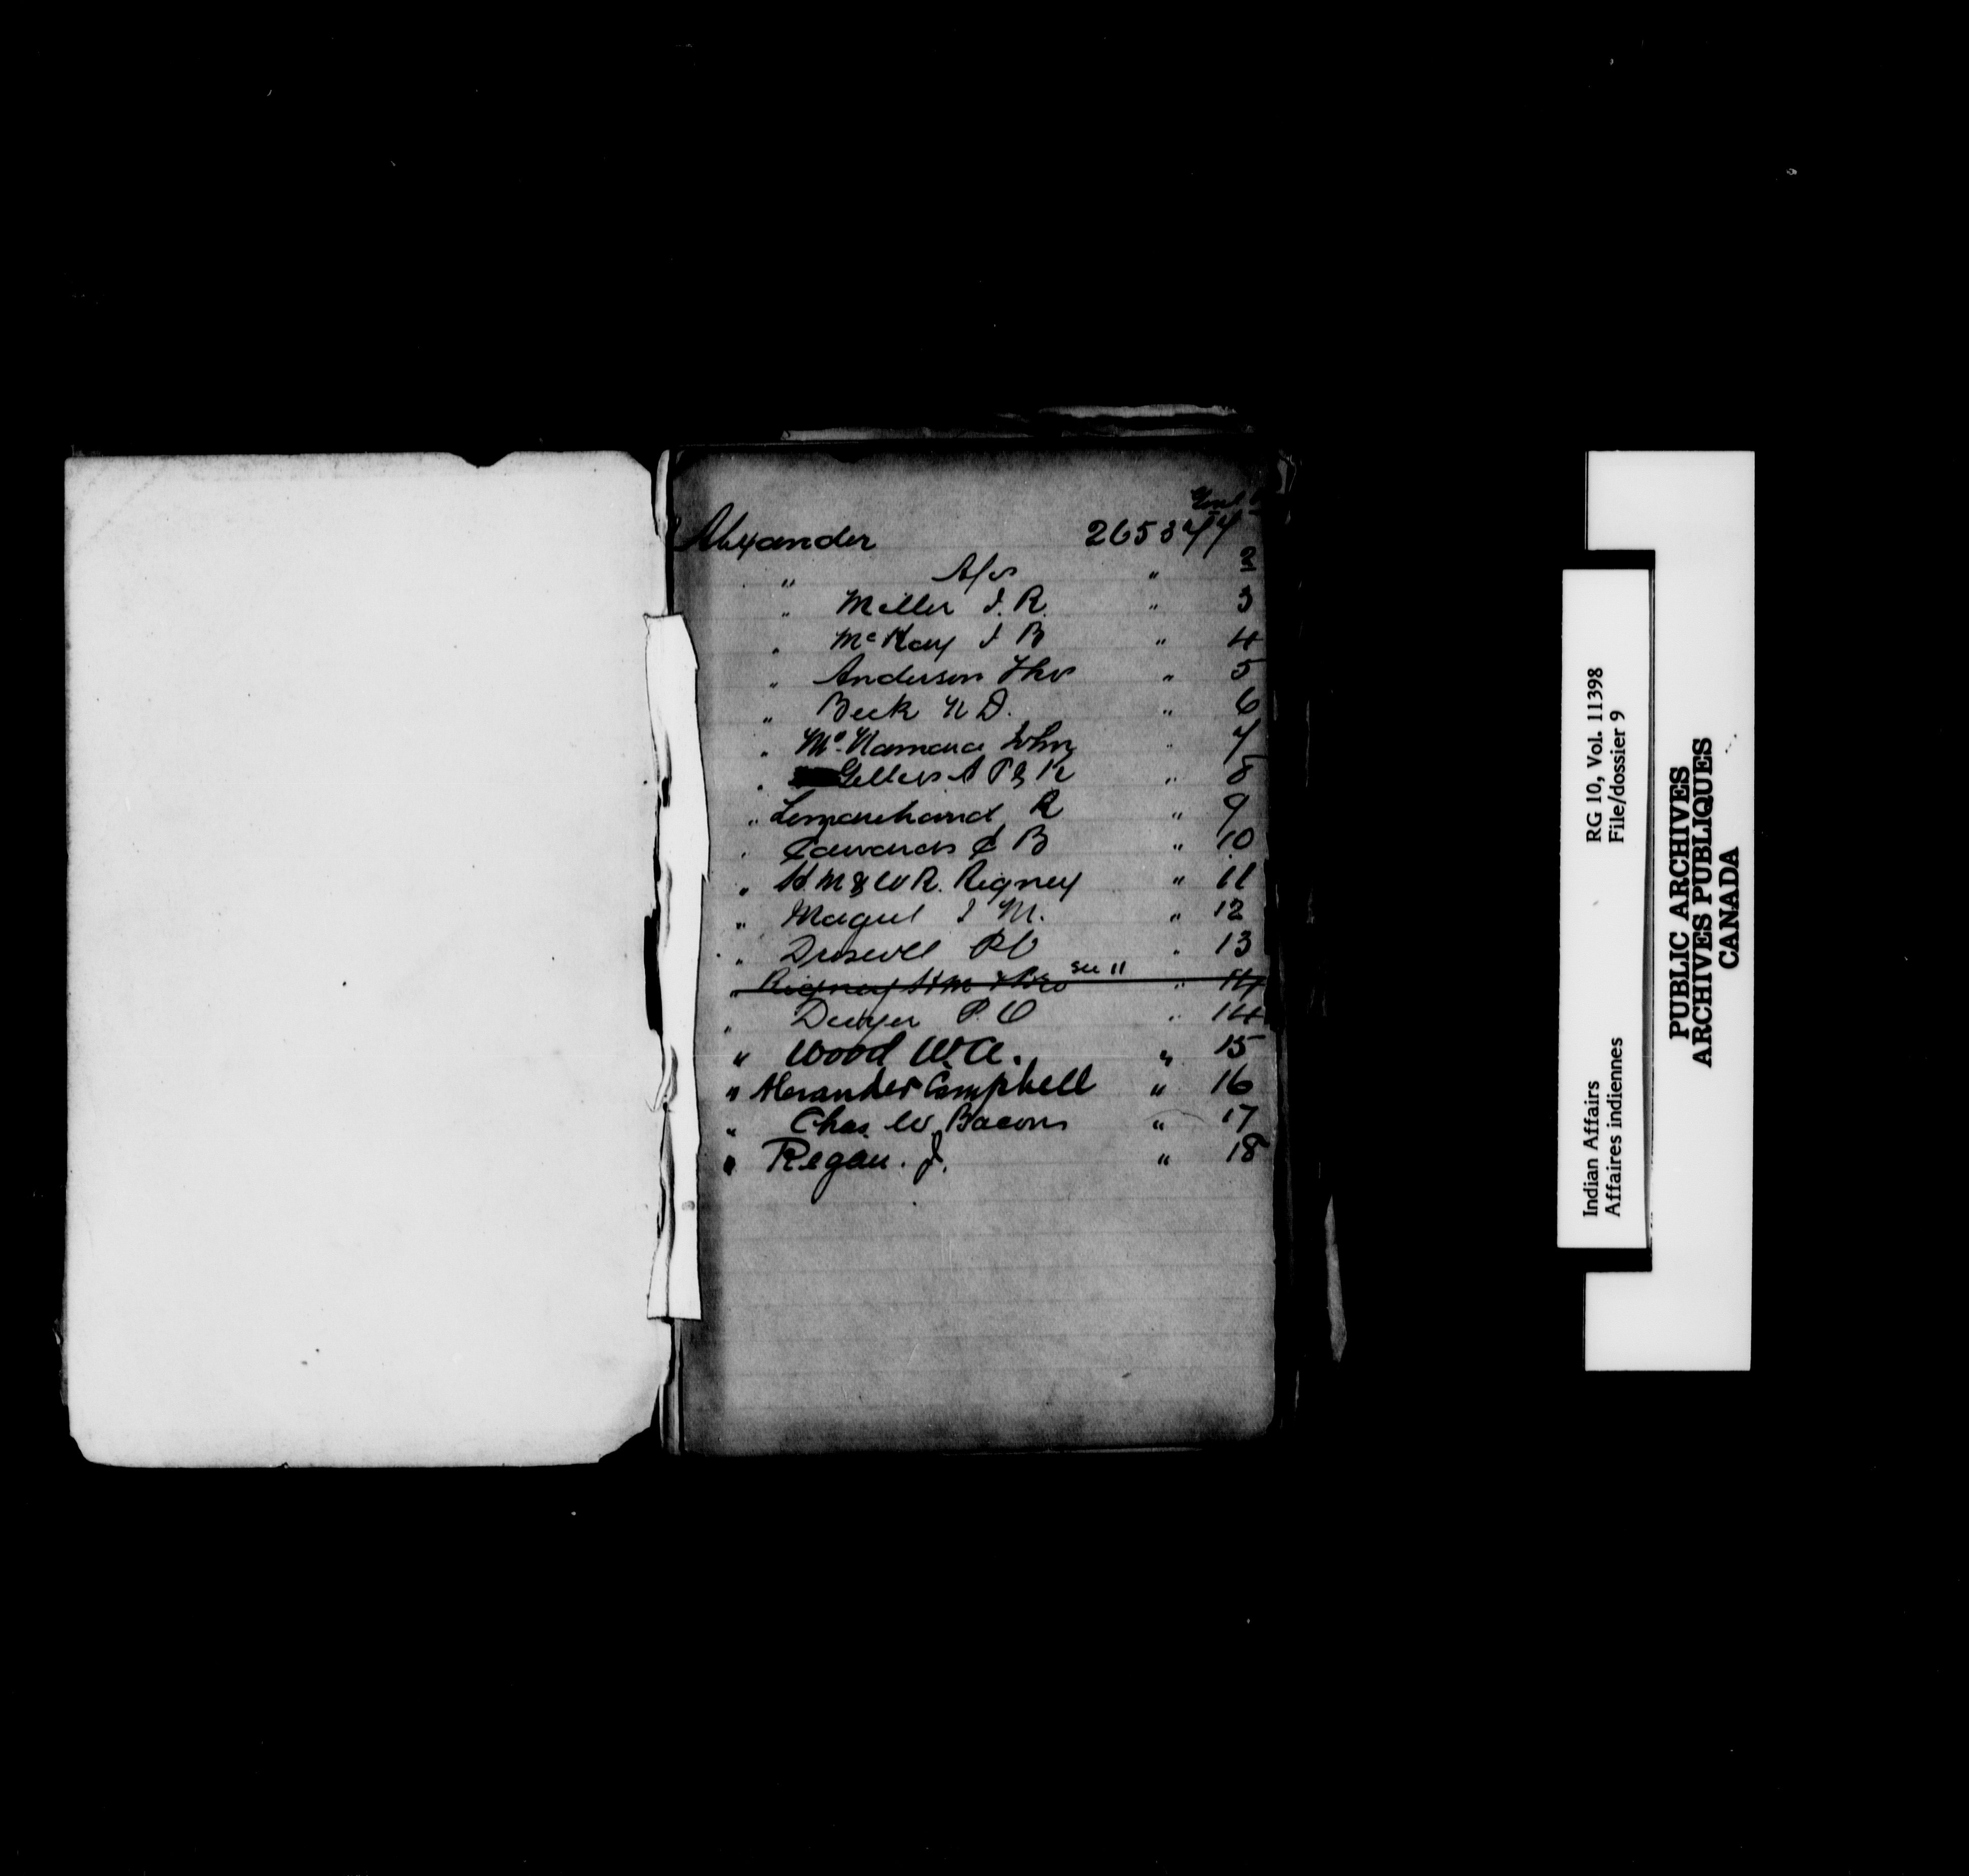 Alexander 265377
" A/cs " 2
" Miller J. R. " 3
" McKay J B " 4
" Anderson Thos " 5
" Beck N D. " 6
" McNamara John " 7
" A P & K " 8
" Lemarchand R " 9
" Edwards C B " 10
" H. M & W R. Rigney " 11
" J M. " 12
" PO " 13
" Rigney H M & Bro see 11 " 14
" Dwyer P. O " 14
" Wood W. A. " 15
" Alexander Campbell " 16
" Chas. W. Bacon " 17
" Regan. J. " 18
Indian Affairs RG 10, Vol. 11398
Affaires indiennes File/dossier 9
PUBLIC ARCHIVES
ARCHIVES PUBLIQUES
CANADA